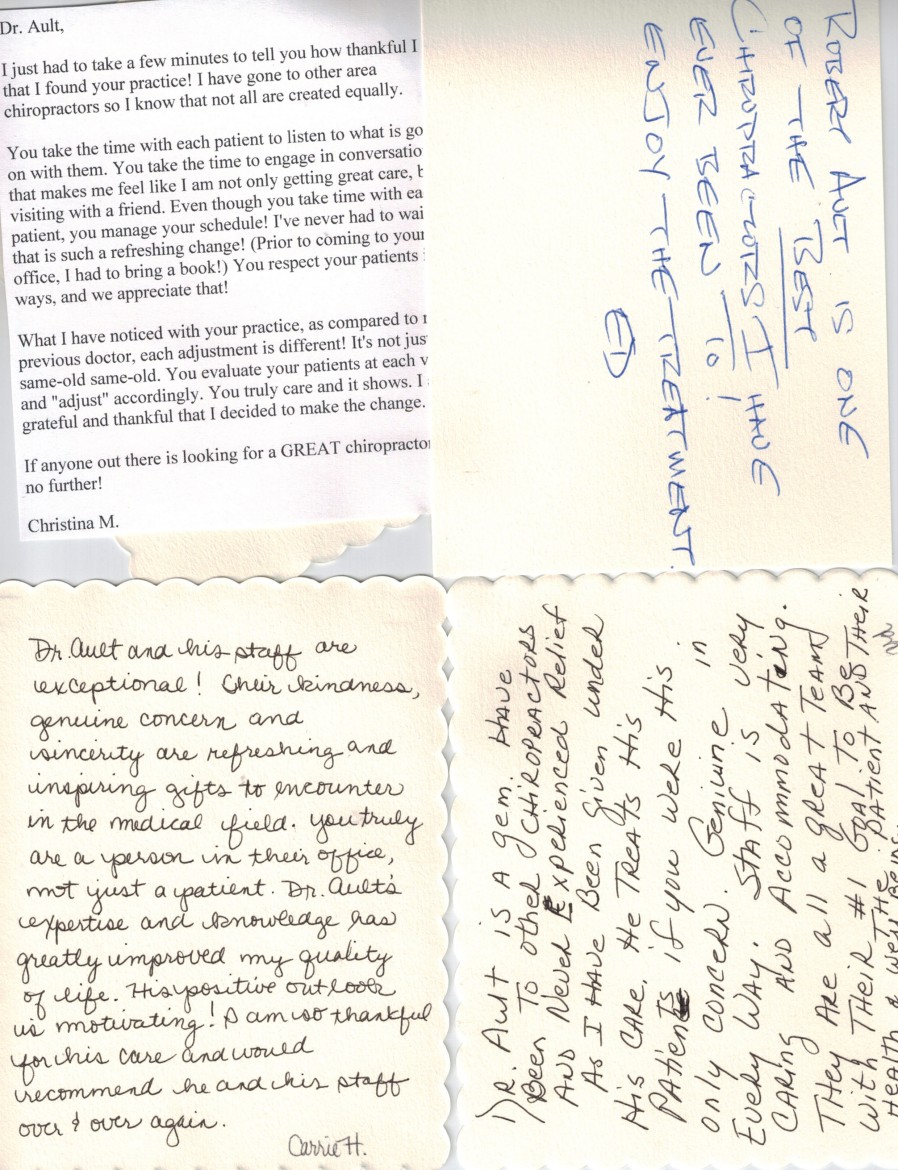 Dr. Ault,
I just had to take a few minutes to tell you how thankful I
that I found your practice! I have gone to other area
chiropractors so I know that not all are created equally.
You take the time with each patient to listen to what is go
on with them. You take the time to engage in conversatio
that makes me feel like I am not only getting great care, b
visiting with a friend. Even though you take time with ea
patient, you manage your schedule! I've never had to wai
that is such a refreshing change! (Prior to coming to your
office, I had to bring a book!) You respect your patients
ways, and we appreciate that!
What I have noticed with your practice, as compared to
previous doctor, each adjustment is different! It's not jus
same-old same-old. You evaluate your patients at each v
and "adjust" accordingly. You truly care and it shows. I
grateful and thankful that I decided to make the change.
If anyone out there is looking for a GREAT chiropractor
no further!
Christina M.
ROBERT AULT IS ONE
OF THE BEST
CHIROPRACTORS I HAVE
EVER BEEN TO!
ENJOY THE TREATMENT.
Dr. Ault and his staff are
exceptional! Their kindness,
genuine concern and
sincerity are refreshing and
inspiring gifts to encounter
in the medical field. You truly
are a person in their office,
not just a patient. Dr. Ault's
expertise and knowledge has
greatly improved my quality
of life. His positive outlook
is motivating! I am so thankful
for his care and would
recommend he and his staff
over & over again.
Carrie H.
DR. AULT IS A GEM. HAVE
BEEN TO OTHER CHIROPRACTORS
AND NEVER EXPERIENCED RELIEF
AS I HAVE BEEN GIVEN UNDER
HIS CARE. HE TREATS HIS
PATIENTS IF YOU WERE HIS
ONLY CONCERN. GENIUINE IN
EVERY WAY. STAFF IS VERY
CARING AND ACCOMMODATING.
THEY ARE ALL A GREAT TEAM
WITH THEIR #1 GOAL TO BE THEIR
THE PATIENT AND THEIR
HEALTH & WELL BEING.